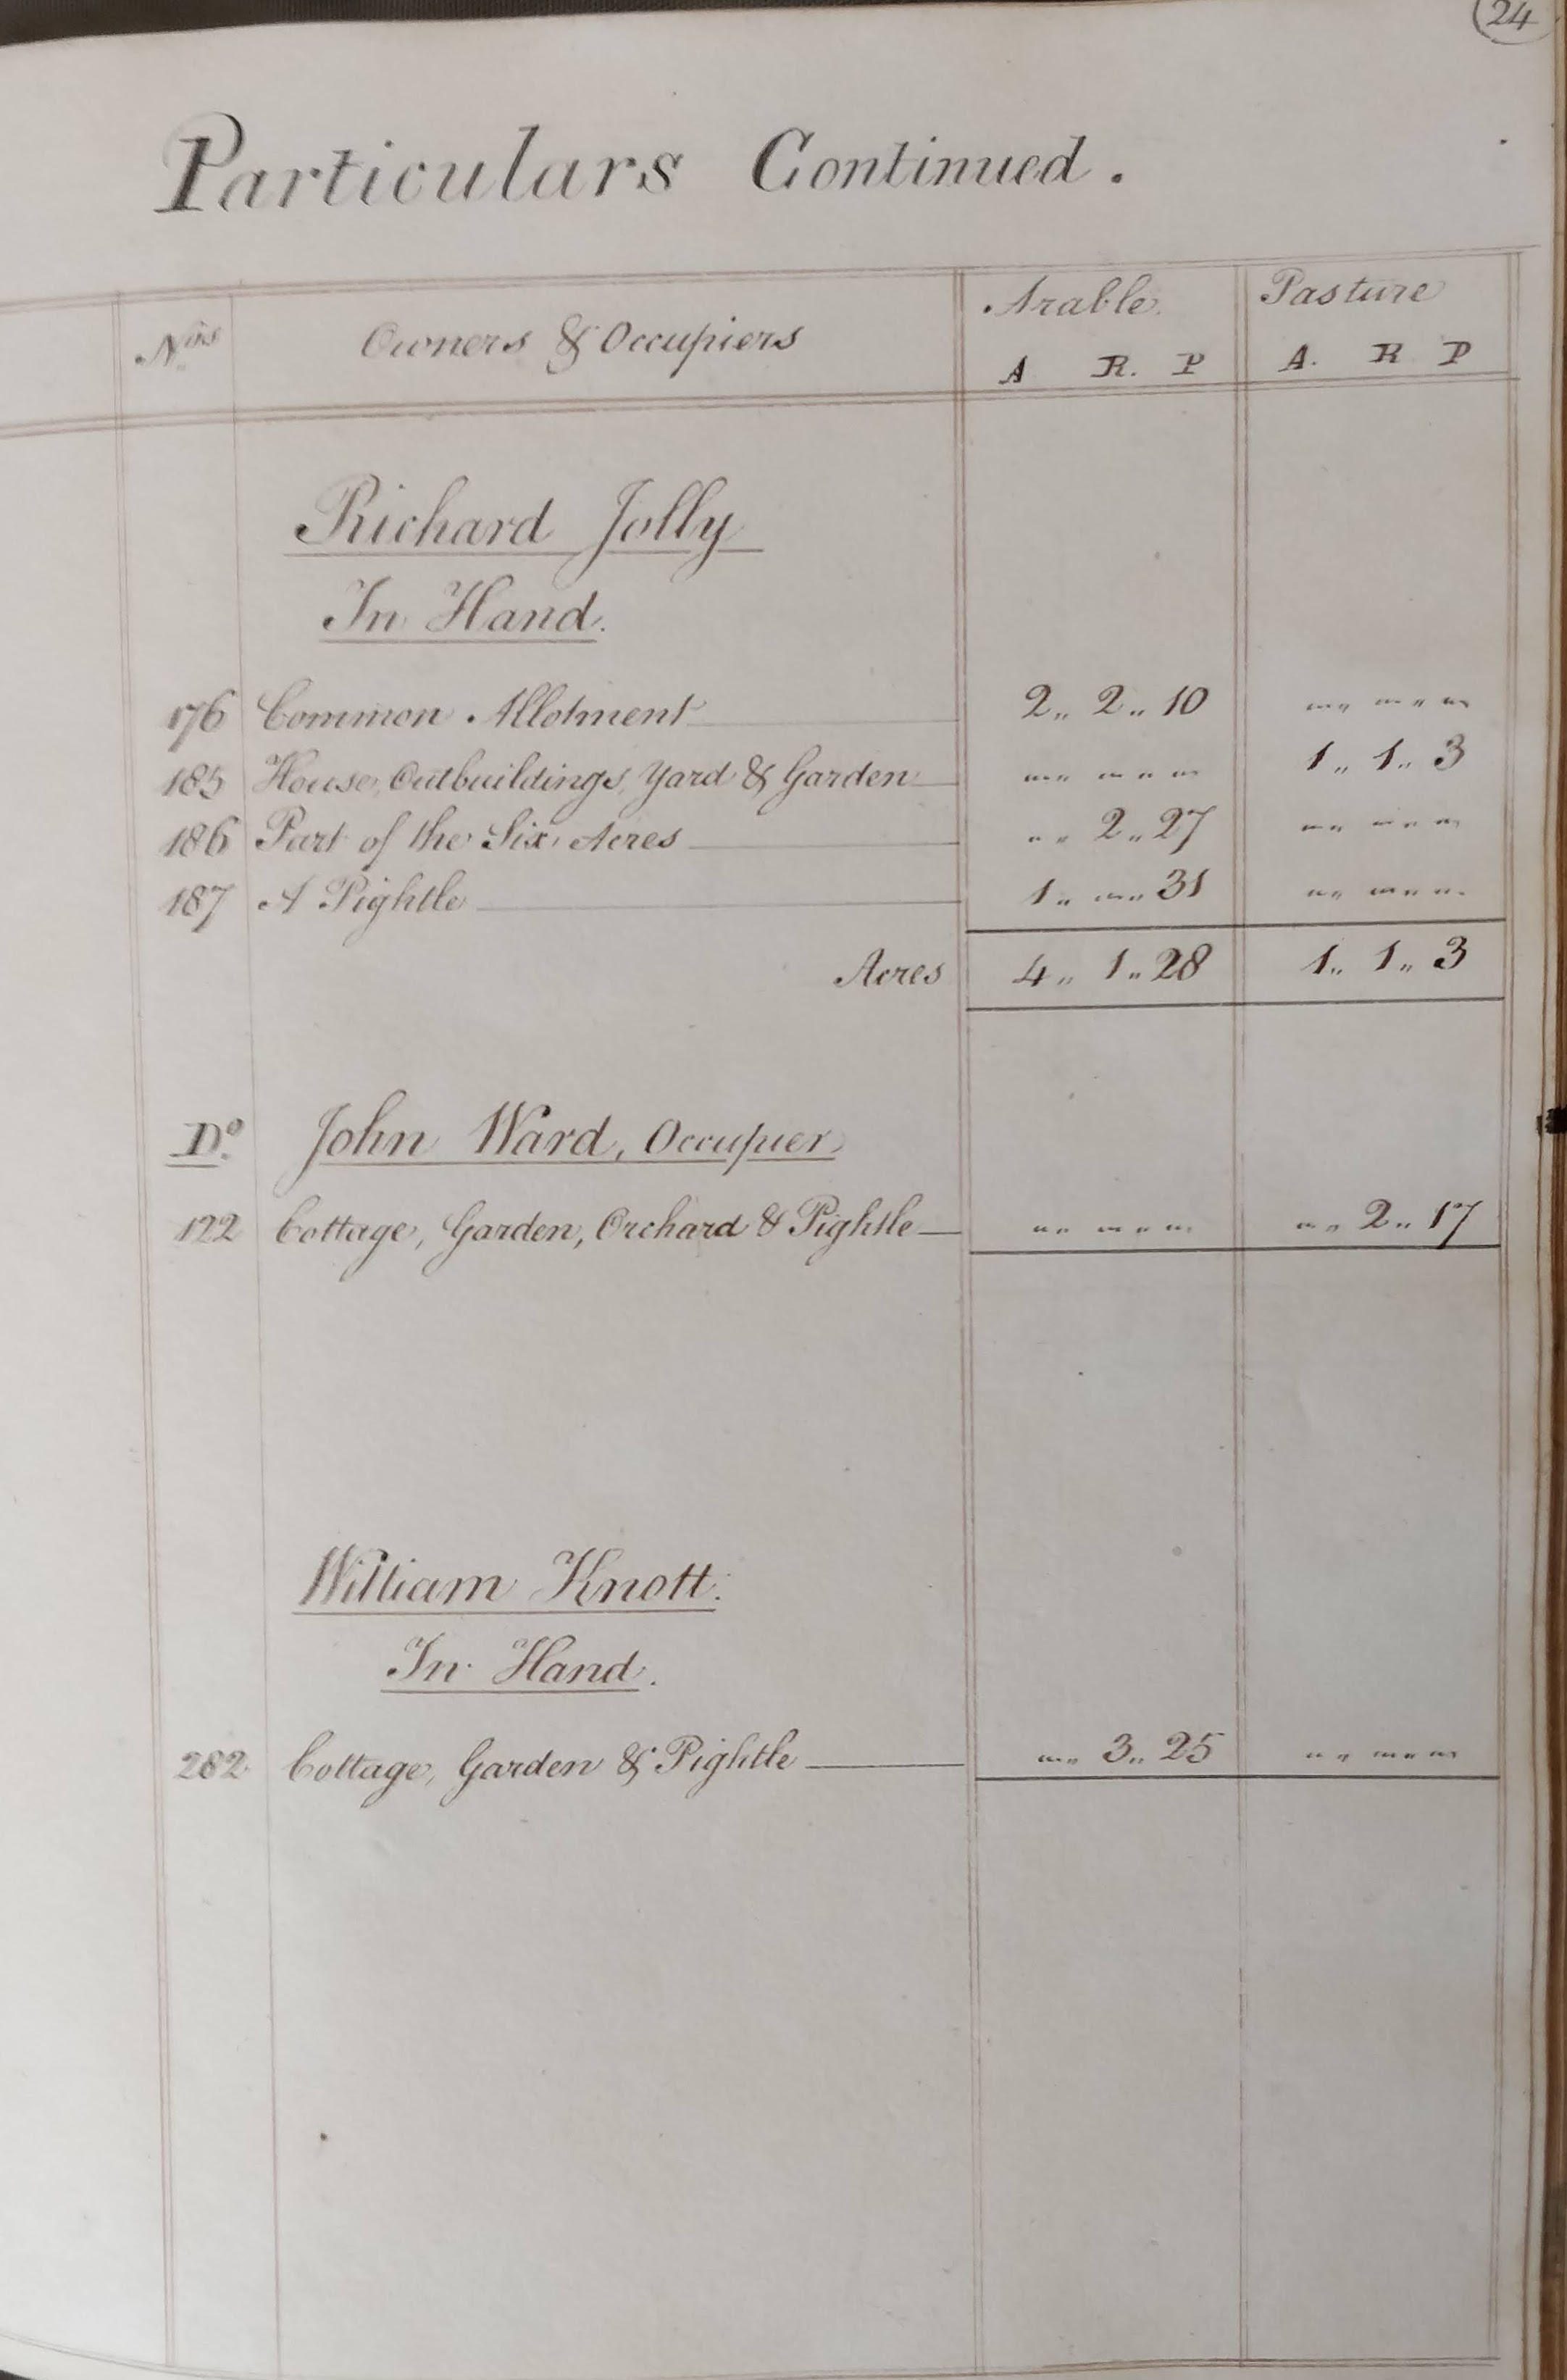 24
Particulars Continued.
Nos. Owners & Occupiers Arable. Pasture
A R. P A. R P
Richard Jolly
In Hand.
176 Common Allotment 2,, 2,, 10 ,, ,, ,,
185 House, Outbuildings, Yard & Garden ,, ,, ,, 1,, 1,, 3
186 Part of the Six Acres ,, 2,, 27 ,, ,, ,,
187 A Pightle 1,, ,, 31 ,, ,, ,,
Acres 4,, 1,, 28 1,, 1,, 3
Do. John Ward, Occupier
122 Cottage, Garden, Orchard & Pightle ,, ,, ,, ,, 2,, 17
William Knott.
In Hand.
282 Cottage, Garden & Pightle ,, 3,, 25 ,, ,, ,,